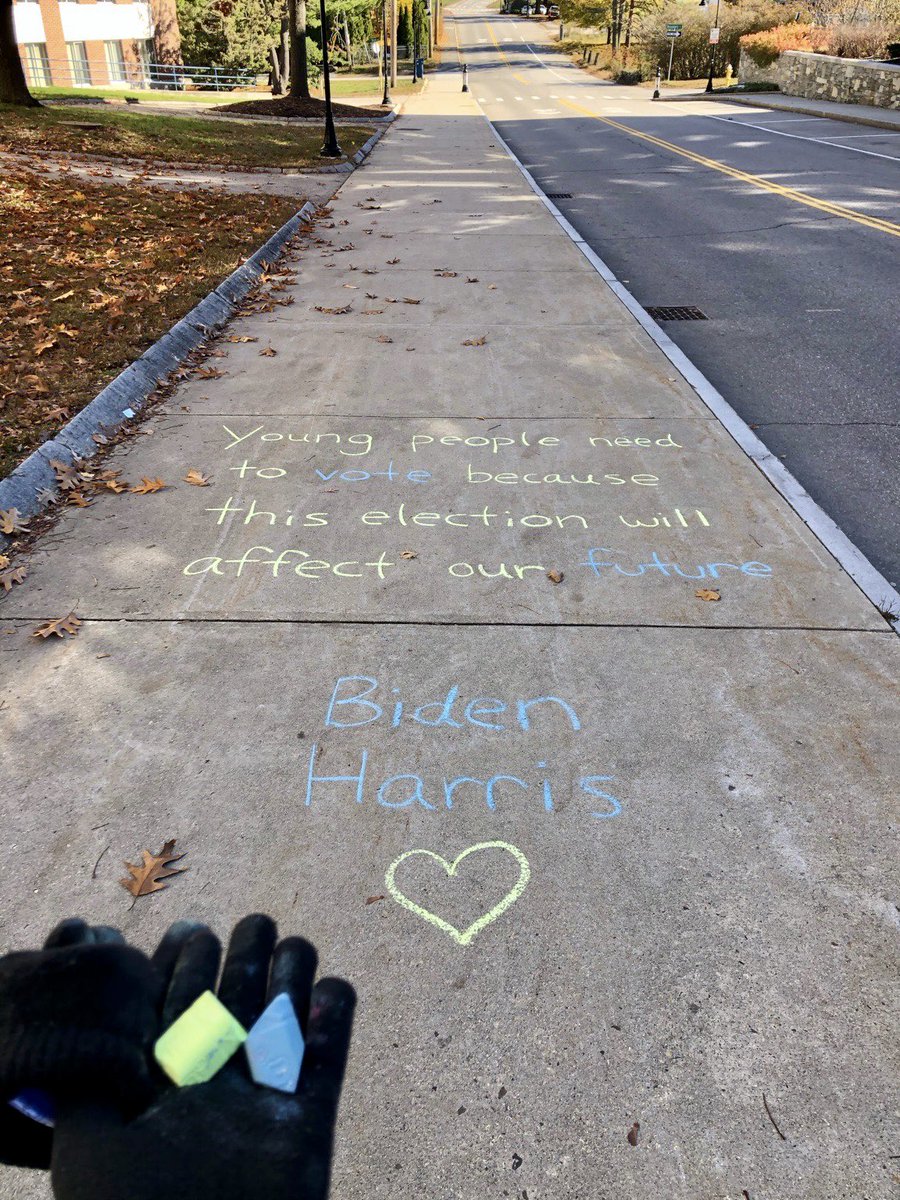 Young people need
to vote because
this election will
affect our future
Biden
Harris